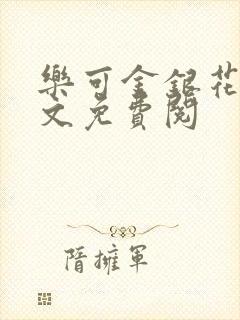 樂可金銀花
文免費閱
隋擁軍